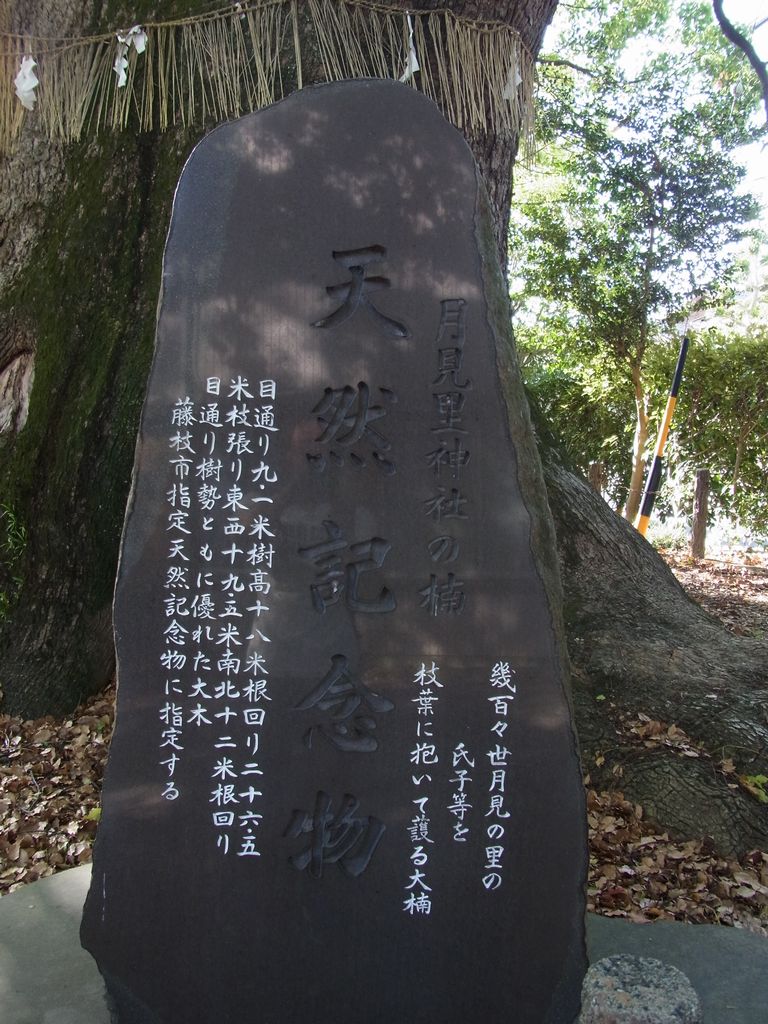 月見里神社の楠
天然記念物
幾百々世月見の里の
氏子等を
枝葉に抱いて護る大楠
目通り九・一米樹高十八米根回り二十六・五
米枝張り東西十九・五米南北十二米根回り
目通り樹勢ともに優れた大木
藤枝市指定天然記念物に指定する